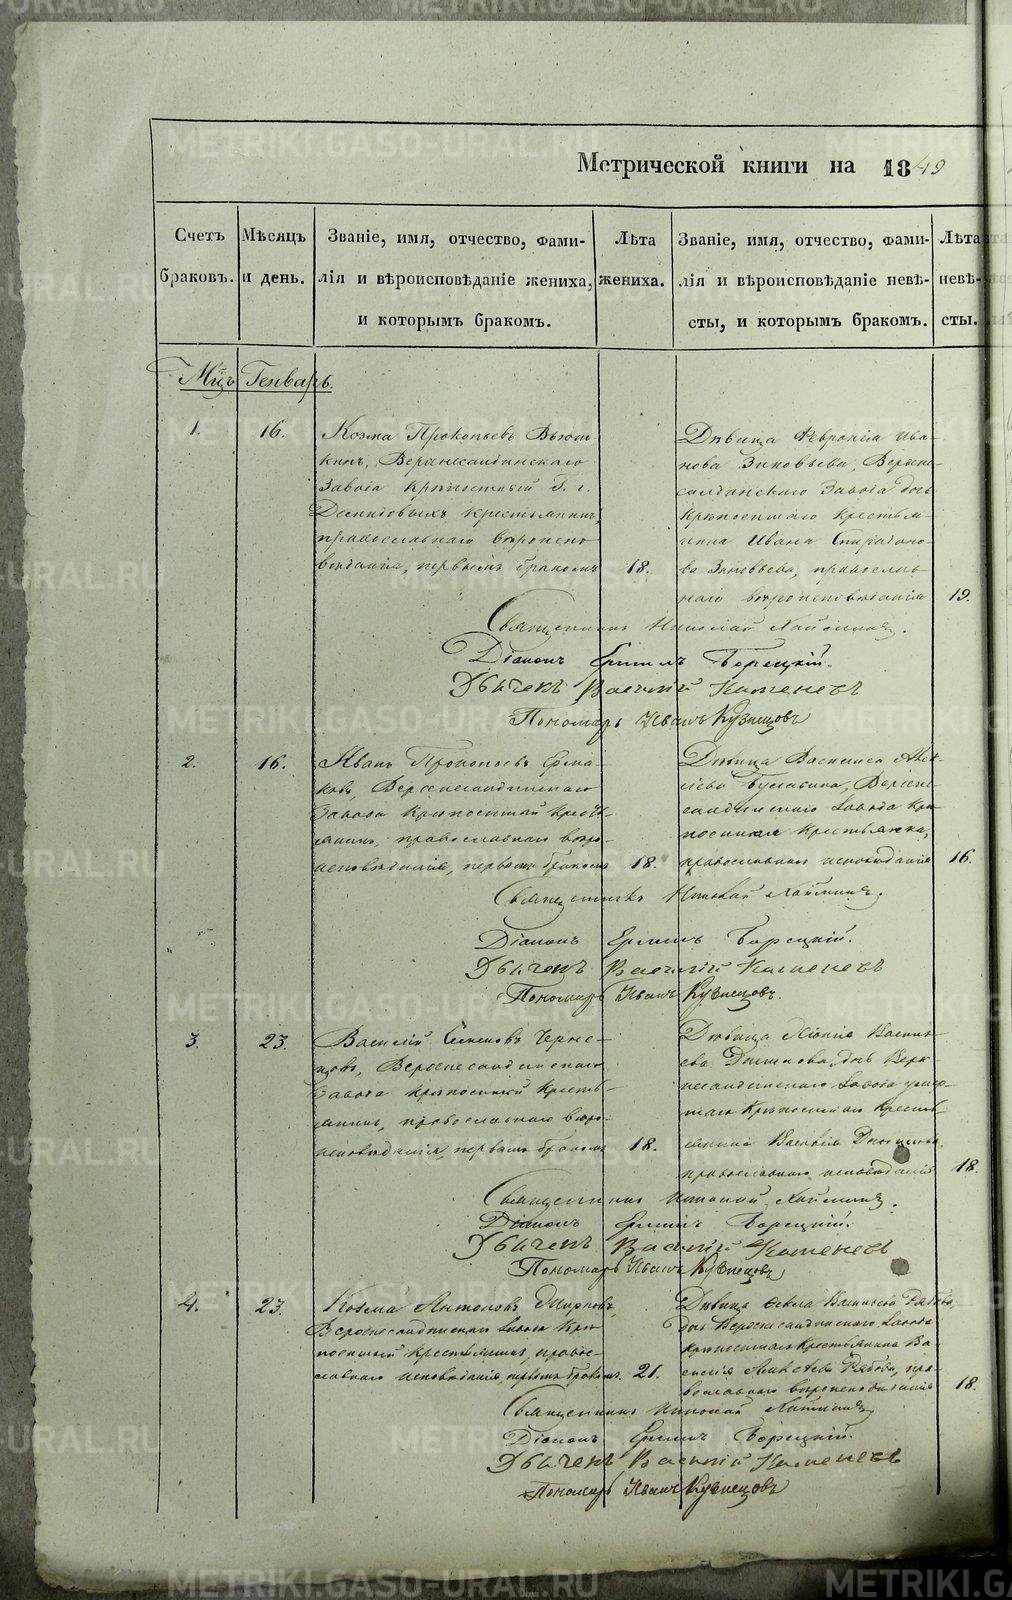 METRIKI.GASO-URAL.RU
Метрической книги на 1849
Счетъ браковъ.
Мѣсяцъ и день.
Званіе, имя, отчество, фами-
лія и вѣроисповѣданіе жениха,
и которымъ бракомъ.
Лѣта жениха.
Званіе, имя, отчество, фами-
лія и вѣроисповѣданіе невѣ-
сты, и которымъ бракомъ.
Лѣта невѣ-
сты.
Мцъ Генварь.
1.
16.
Козма Прокопьевъ Вьют-
кинъ, Верхнесалдинскаго
Завода крѣпостный Г. г.
Демидовыхъ крестьянинъ,
православнаго вѣроиспо-
вѣданія, первымъ бракомъ
18.
Дѣвица Февронія Ива-
нова Зиновьева, Верхне-
салдинскаго Завода дочь
крѣпостнаго крестья-
нина Ивана Спиридоно-
ва Зиновьева, православ-
наго вѣроисповѣданія
19.
Священникъ Николай
Діаконъ Ермилъ Борецкій.
Дьячекъ Василій Каменевъ
Пономарь Иванъ Кузнецовъ
2.
16.
Иванъ Прокопьевъ Ерма-
ковъ, Верхнесалдинскаго
Завода крѣпостный кресть-
янинъ, православнаго вѣро-
исповѣданія, первымъ бракомъ
18.
Дѣвица Василиса Алек-
сѣева Верхне-
салдинскаго Завода крѣ-
постная крестьянка,
православнаго исповѣданія
16.
Священникъ Николай
Діаконъ Ермилъ Борецкій.
Дьячекъ Василій Каменевъ
Пономарь Иванъ Кузнецовъ.
3.
23.
Василій Семеновъ Черне-
цовъ, Верхнесалдинскаго
Завода крѣпостный кресть-
янинъ, православнаго вѣро-
исповѣданія, первымъ бракомъ
18.
Дѣвица Василь-
ева дочь Верх-
несалдинскаго Завода умер-
шаго крѣпостнаго кресть-
янина Василія
православнаго исповѣданія
18.
Священникъ Николай
Діаконъ Ермилъ Борецкій.
Дьячекъ Василій Каменевъ
Пономарь Иванъ Кузнецовъ
4.
23.
Козма Антоновъ
Верхнесалдинскаго Завода крѣ-
постный крестьянинъ, право-
славнаго исповѣданія, первымъ бракомъ
21.
Дѣвица Ѳекла Васильева Рябова,
дочь Верхнесалдинскаго Завода
крѣпостнаго крестьянина Ва-
силія Алексѣева Рябова, пра-
вославнаго вѣроисповѣданія
18.
Священникъ Николай
Діаконъ Ермилъ Борецкій.
Дьячекъ Василій Каменевъ
Пономарь Иванъ Кузнецовъ